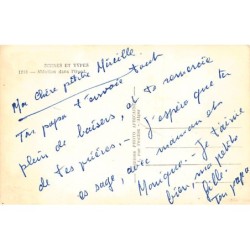 SCÈNES ET TYPES
Ma chère petite Mireille.
Ton papa t'envoie tout
plein de baisers, et te remercie
de tes prières. — J'espère que tu
es sage, avec maman et
Monique. — Je t'aime
bien, ma petite
fille.
Ton papa